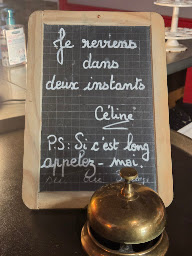 Je reviens
dans
deux instants
Céline
PS: Si c'est long
appelez-moi.